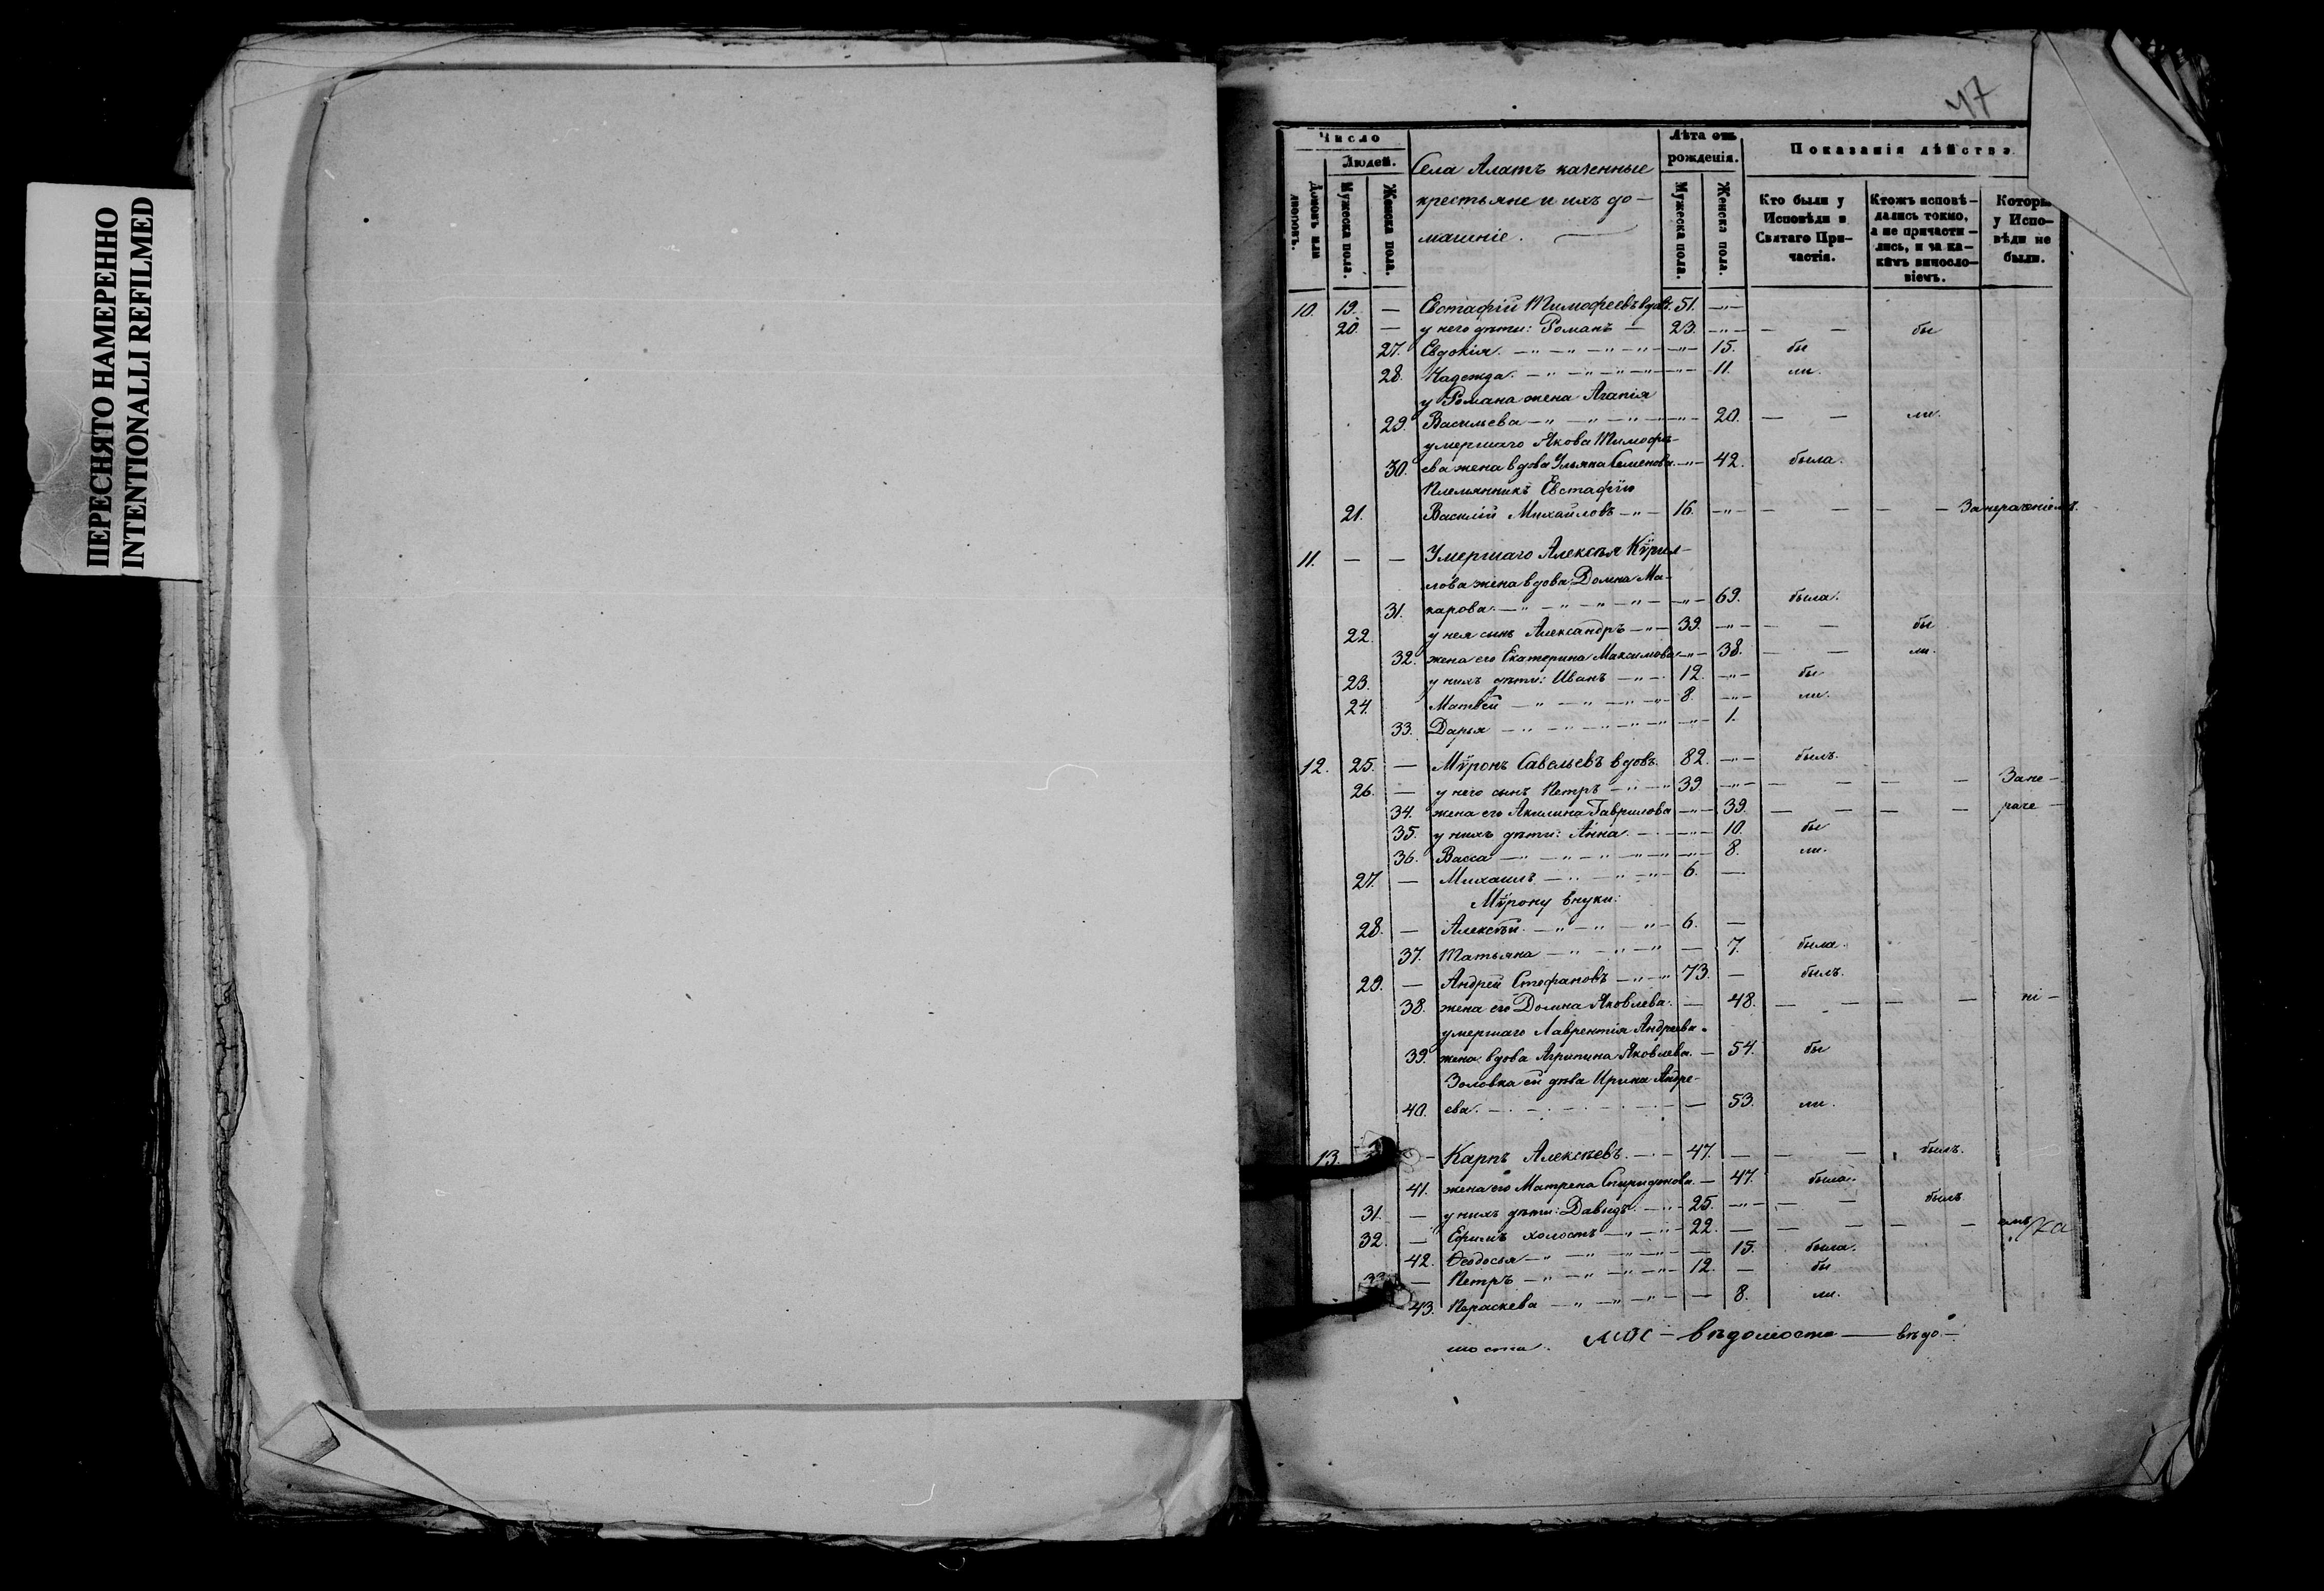 ПЕРЕСНЯТО НАМЕРЕННО
INTENTIONALLI REFILMED
47
Число
Людей.
Домовъ или дворовъ.
Мужеска пола.
Женска пола.
Села Алатъ казенные
крестьяне и ихъ до-
машніе.
Лѣта отъ рожденія.
Мужеска пола.
Женска пола.
Показанія дѣйства
Кто были у Исповѣди и Святаго При-частія.
Ктожъ исповѣ-дались токмо, а не причасти-лись, и за ка-кимъ винosло-віемъ.
Которы у Испо-вѣди не были.
10. 19. — Евстафій Тимофеевъ вдов. 51. —"—
20. — у него дѣти: Романъ — 23. —"— — — бы
27. Евдокія. —"—"—"—"— —"— 15. бы
28. Надежда. —"—"—"—"— —"— 11. ли.
у Романа жена Агапія
29. Васильева —"—"—"— —"— 20. — — ли.
умершаго Якова Тимофѣ-
30. ева жена вдова Ульяна Семенова. —"— 42. была.
Племянникъ Евстафїю
21. Василій Михайловъ —"— 16. —"— — — — — Занераченіемъ.
11. — — Умершаго Алексѣя Кѵрил-
лова жена вдова Домна Ма-
31. карова. —"—"—"—"— —"— 69. была.
22. у нея сынъ Александръ —"— 39. —"— — — бы
32. жена его Екатерина Максимова —"— 38. — — ли.
23. у нихъ дѣти: Иванъ —"— 12. —"— бы
24. Матвѣй —"—"—"—"— 8. —"— ли.
33. Дарья —"—"—"—"— —"— 1.
12. 25. — Мѵронъ Савельевъ вдовъ. 82. —"— былъ.
26. — у него сынъ Петръ —"—"— 39. —"— — — — — Зане-
34. жена его Акилина Гаврилова —"— 39. — — — — раче-
35. у нихъ дѣти: Анна. — —"— 10. бы
36. Васса —"—"—"—"— —"— 8. ли.
27. — Михаилъ —"—"—"— 6. —
Мѵрону внуки:
28. — Алексѣй. —"—"—"— 6. —
37. Татьяна —"—"—"— — 7. была.
29. — Андрей Стефановъ —"—"— 73. — былъ.
38. жена его Домна Яковлева. — 48. — — — — ні-
умершаго Лаврентія Андреева
39. жена вдова Агрипина Яковлева. — 54. бы
Золовка ей дѣва Ирина Андре-
40. ева. — — 53. ли.
13. — Карпъ Алексѣевъ. — 47. — — — былъ.
41. жена его Матрена Спиридонова. — 47. была.
31. — у нихъ дѣти: Давидъ. — 25. —"— — — былъ
32. — Ефимъ холостъ —"— 22. — — — — — емъ
42. Ѳеодосья —"—"—"— — 15. была.
33. — Петръ —"—"—"— 12. — бы
43. Параскева —"—"—"— — 8. ли.
вѣдомости — вѣдо-
мости.